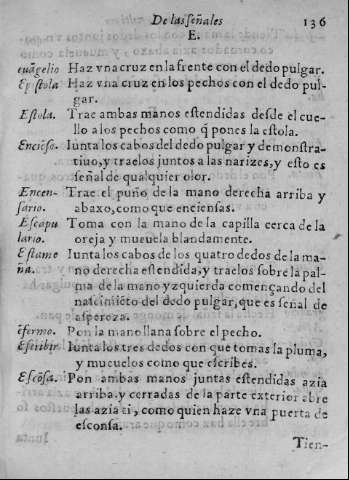 De las señales 136
E.
euãgelio Haz vna cruz en la frente con el dedo pulgar.
Epistola Haz vna cruz en los pechos con el dedo pul-
gar.
Estola. Trae ambas manos estendidas desde el cue-
llo a los pechos como q̃ pones la estola.
Encieso. Iunta los cabos del dedo pulgar y demonstra-
tiuo, y traelos juntos a las narizes, y esto es
señal de qualquier olor.
Encen- Trae el puño de la mano derecha arriba y
sario. abaxo, como que enciensas.
Escapu Toma con la mano de la capilla cerca de la
lario. oreja y mueuela blandamente.
Estame Iunta los cabos de los quatro dedos de la ma-
ña. no derecha estendida, y traelos sobre la pal-
ma de la mano yzquierda començando del
nascimiẽto del dedo pulgar, que es señal de
aspereza.
ẽfermo. Pon la mano llana sobre el pecho.
Escribir Iunta los tres dedos con que tomas la pluma,
y mueuelos como que escribes.
Escõsa. Pon ambas manos juntas estendidas azia
arriba y cerradas de la parte exterior abre
las azia ti, como quien haze vna puerta de
esconsa.
Tien-